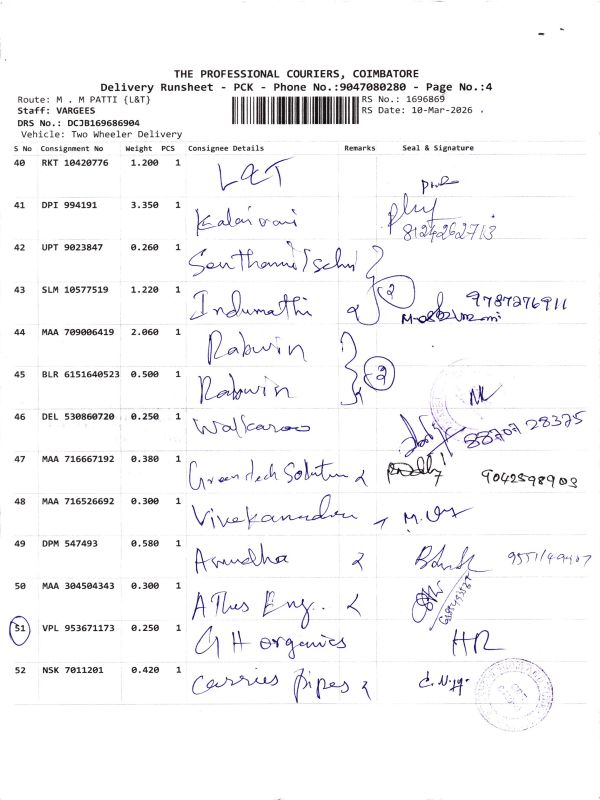 THE PROFESSIONAL COURIERS, COIMBATORE
Delivery Runsheet - PCK - Phone No.:9047080280 - Page No.:4
Route: M . M PATTI {L&T} RS No.: 1696869
Staff: VARGEES RS Date: 10-Mar-2026 .
DRS No.: DCJB169686904
Vehicle: Two Wheeler Delivery
S No Consignment No Weight PCS Consignee Details Remarks Seal & Signature
40 RKT 10420776 1.200 1 L&T
41 DPI 994191 3.350 1 Kalaivani
8124262713
42 UPT 9023847 0.260 1
43 SLM 10577519 1.220 1 Indumathi 2 9787276911
44 MAA 709006419 2.060 1 Rabwin
45 BLR 6151640523 0.500 1 Rabwin 2
46 DEL 530860720 0.250 1 Walkaroo 88707 28375
47 MAA 716667192 0.380 1 Greentech Solution 9042598903
48 MAA 716526692 0.300 1
49 DPM 547493 0.580 1 Anudha
50 MAA 304504343 0.300 1 Eng..
51 VPL 953671173 0.250 1 GH organics HR
52 NSK 7011201 0.420 1 Carries Pipes